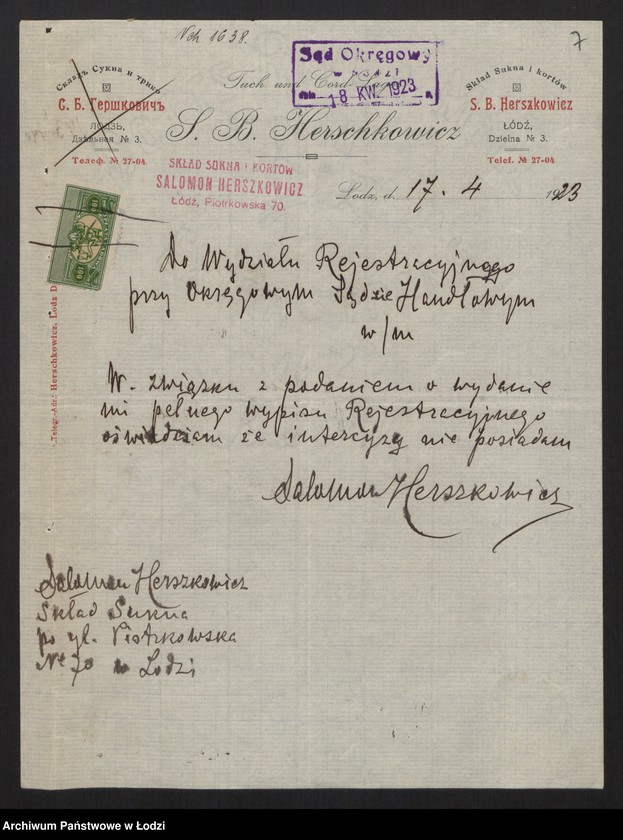 Nch 1638.
7
Складъ Сукна и трико
С. Б. Гершковичъ
ЛОДЗЬ,
Дзѣльная № 3.
Телеф. № 27-04
Tuch und Cord
S. B. Herschkowicz
Sąd Okręgowy
w Łodzi
dnia 18 KW. 1923 r.
Skład Sukna i kortów
S. B. Herszkowicz
ŁÓDŹ,
Dzielna № 3.
Telef. № 27-04
SKŁAD SUKNA I KORTÓW
SALOMON HERSZKOWICZ
Łódź, Piotrkowska 70.
Lodz, d. 17. 4 1923
100
Telegr.-Adr.: Herschkowicz, Lodz D
Do Wydziału Rejestracyjnego
przy Okręgowym Sądzie Handłowym
w/m
W. związku z podaniem o wydanie
mi pełnego wypisu Rejestracyjnego
oświadczam że intercyzy nie posiadam
Salomon Herszkowicz
Salomon Herszkowicz
Skład Sukna
po ul. Piotrkowska
№ 70 w Lodzi
Archiwum Państwowe w Łodzi